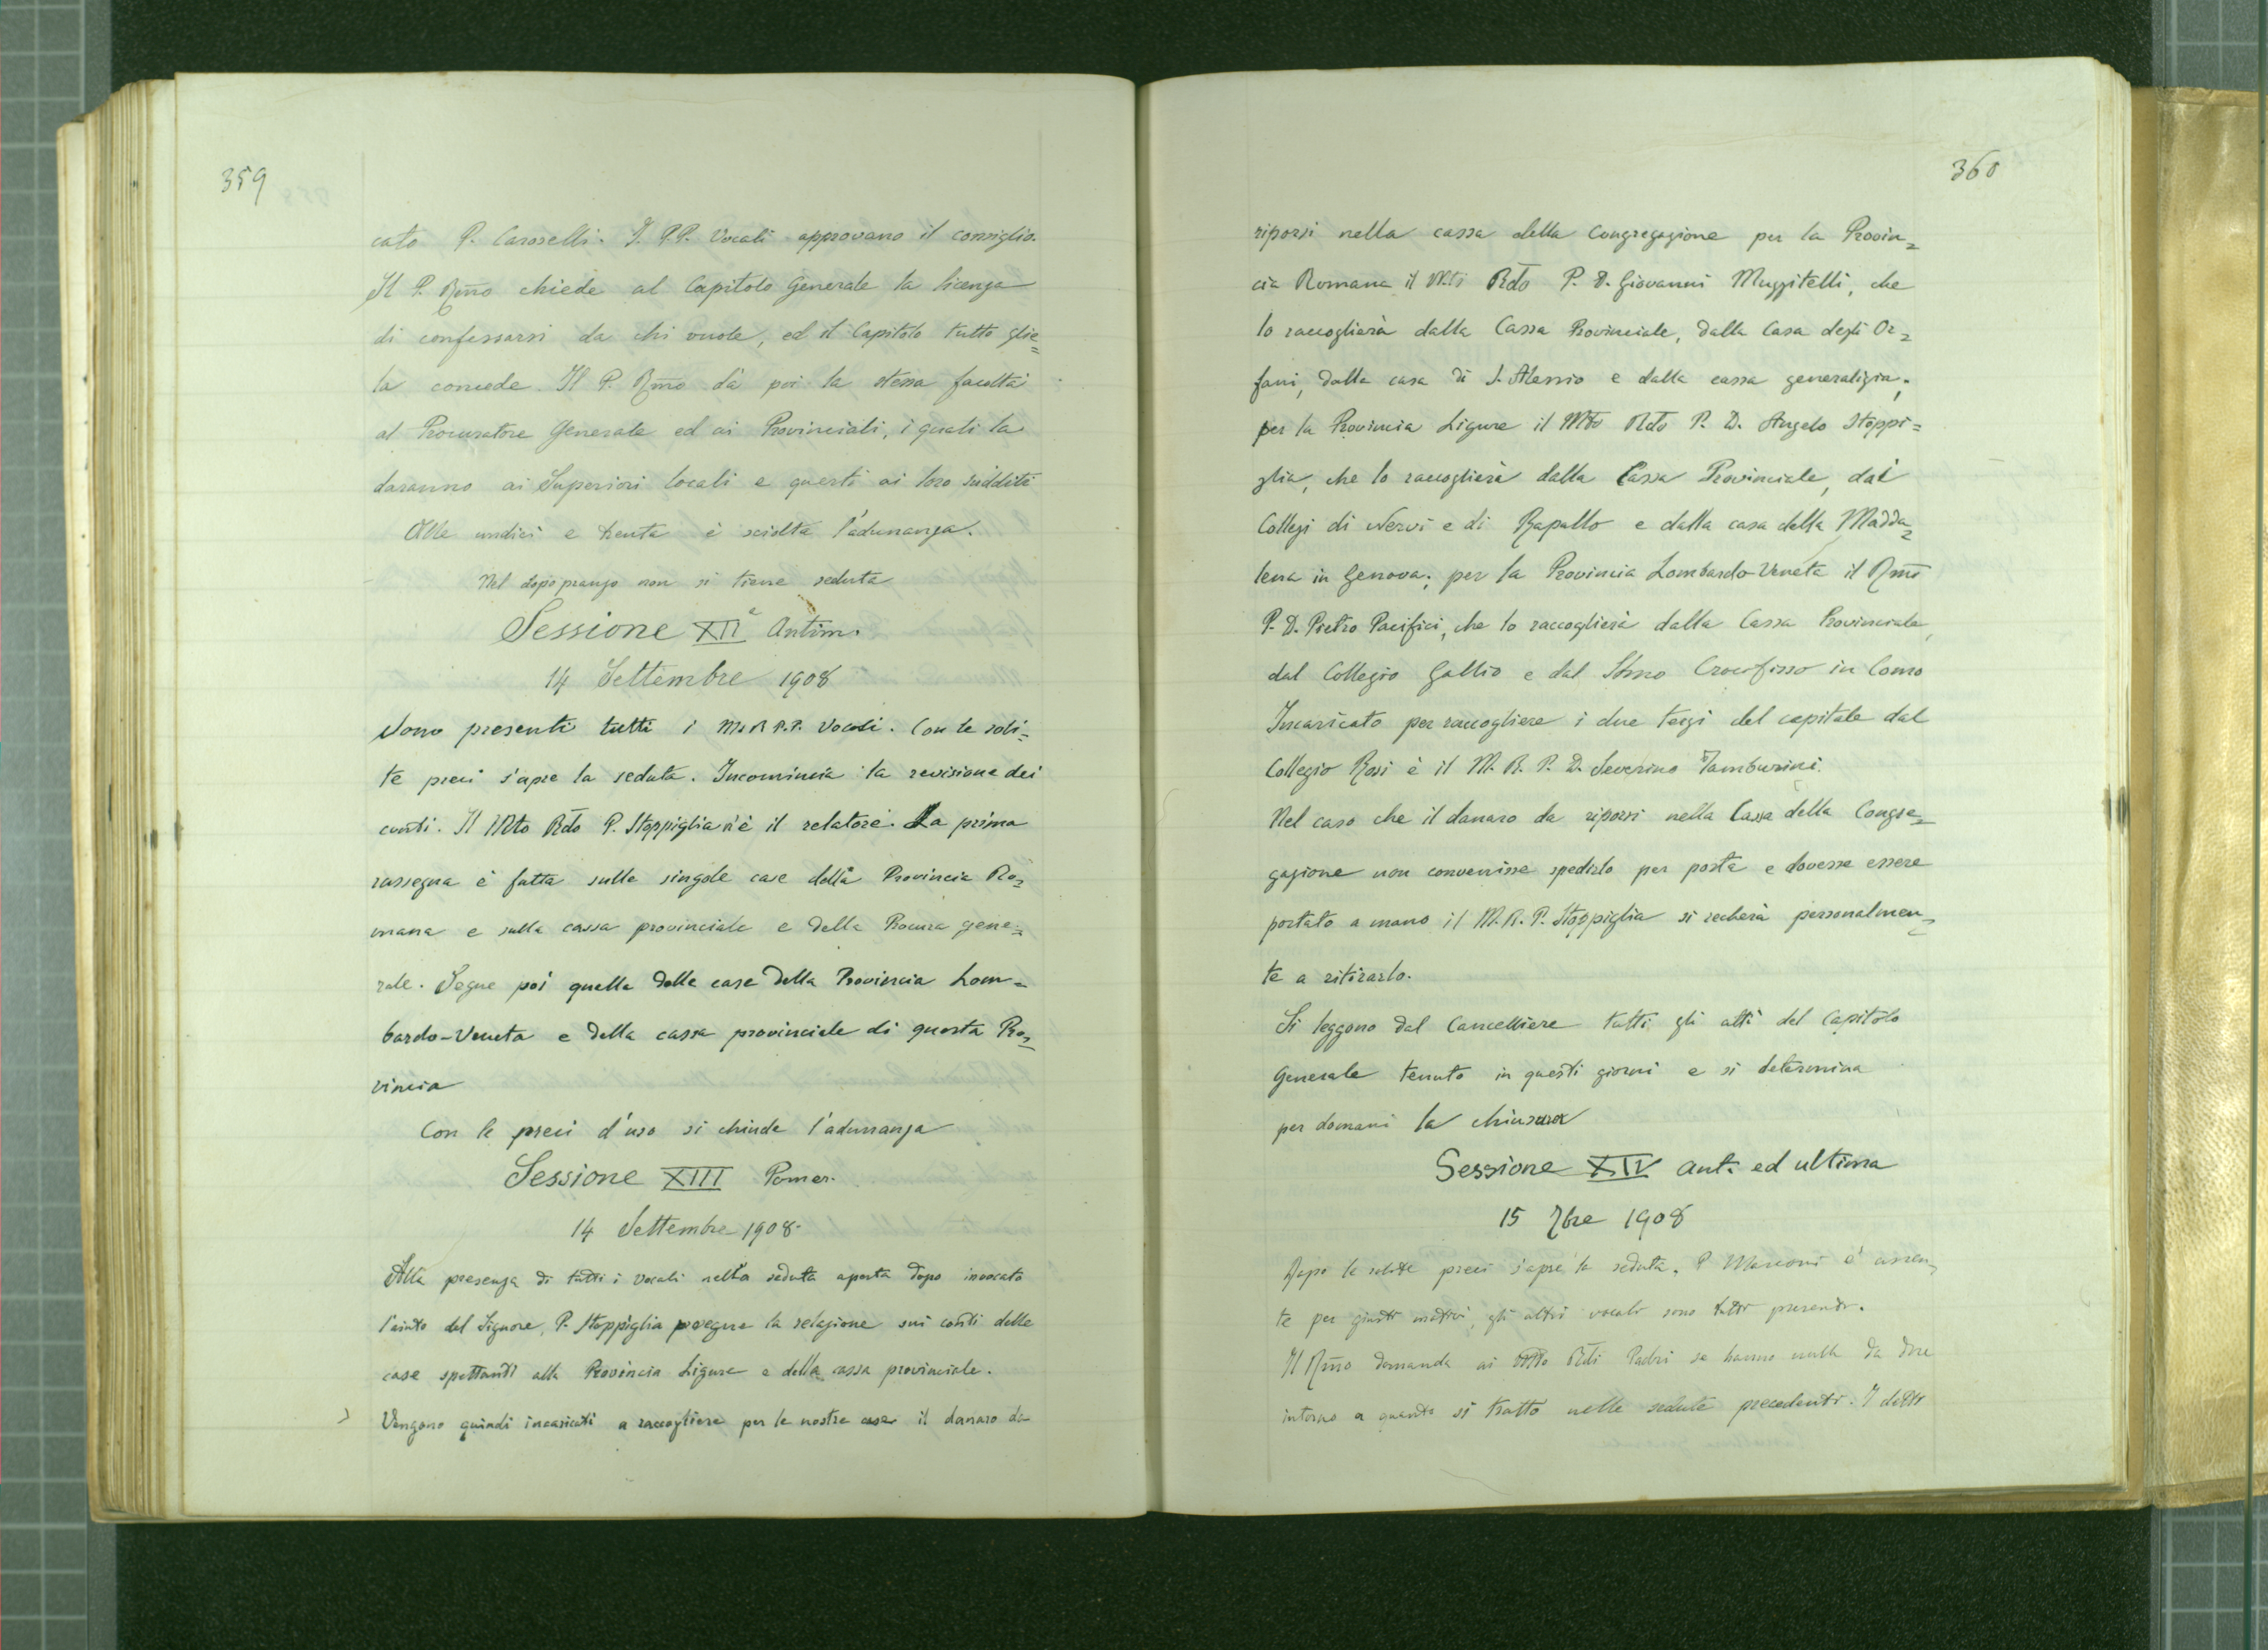 359
cato P. Caroselli. I PP. Vocali approvano il consiglio.
Il P. Rm̄o chiede al Capitolo Generale la licenza
di confessarsi da chi vuole, ed il Capitolo tutto glie=
la concede. Il P. Rm̄o dà poi la stessa facoltà
al Procuratore Generale ed ai Provinciali, i quali la
daranno ai Superiori locali e questi ai loro sudditi
Alle undici e trenta è sciolta l'adunanza.
Nel dopo pranzo non si tiene seduta
Sessione XIIᵃ Antim.
14 Settembre 1908
Sono presenti tutti i M. R. P.P. Vocali. Con le soli=
te preci s'apre la seduta. Incomincia la revisione dei
conti. Il Mto Rdo P. Stoppiglia n'è il relatore. La prima
rassegna è fatta sulle singole case della Provincia Ro=
mana e sulla cassa provinciale e della Procura gene=
rale. Segue poi quella delle case della Provincia Lom=
bardo-Veneta e della cassa provinciale di questa Pro=
vincia
Con le preci d'uso si chiude l'adunanza
Sessione XIII Pomer.
14 Settembre 1908.
Alla presenza di tutti i vocali nella seduta aperta dopo invocato
l'aiuto del Signore, P. Stoppiglia prosegue la relazione sui conti delle
case spettanti alla Provincia Ligure e della cassa provinciale.
Vengono quindi incaricati a raccogliere per le nostre case il danaro da
360
riporsi nella cassa della Congregazione per la Provin=
cia Romana il Mto Rdo P. D. Giovanni Muzzitelli, che
lo raccoglierà dalla Cassa Provinciale, dalla Casa degli Or=
fani, dalla casa di S. Alessio e dalla cassa generalizia;
per la Provincia Ligure il Mto Rdo P. D. Angelo Stoppi=
glia, che lo raccoglierà dalla Cassa Provinciale, dai
Collegi di Nervi e di Rapallo e dalla casa della Madda=
lena in Genova; per la Provincia Lombardo-Veneta il Rm̄o
P. D. Pietro Pacifici, che lo raccoglierà dalla Cassa Provinciale,
dal Collegio Gallio e dal SSmo Crocifisso in Como
Incaricato per raccogliere i due terzi del capitale dal
Collegio Rosi è il M. R. P. D. Severino Tamburini.
Nel caso che il danaro da riporsi nella Cassa della Congre=
gazione non convenisse spedirlo per posta e dovesse essere
portato a mano il M. R. P. Stoppiglia si recherà personalmen=
te a ritirarlo.
Si leggono dal Cancelliere tutti gli atti del Capitolo
Generale tenuto in questi giorni e si determina
per domani la chiusura
Sessione XIV ant. ed ultima
15 7bre 1908
Dopo le solite preci s'apre la seduta. P. Marconi è assen=
te per giusti motivi, gli altri vocali sono tutti presenti.
Il Rm̄o domanda ai Rdi Padri se hanno nulla da dire
intorno a quanto si trattò nelle sedute precedenti. I detti